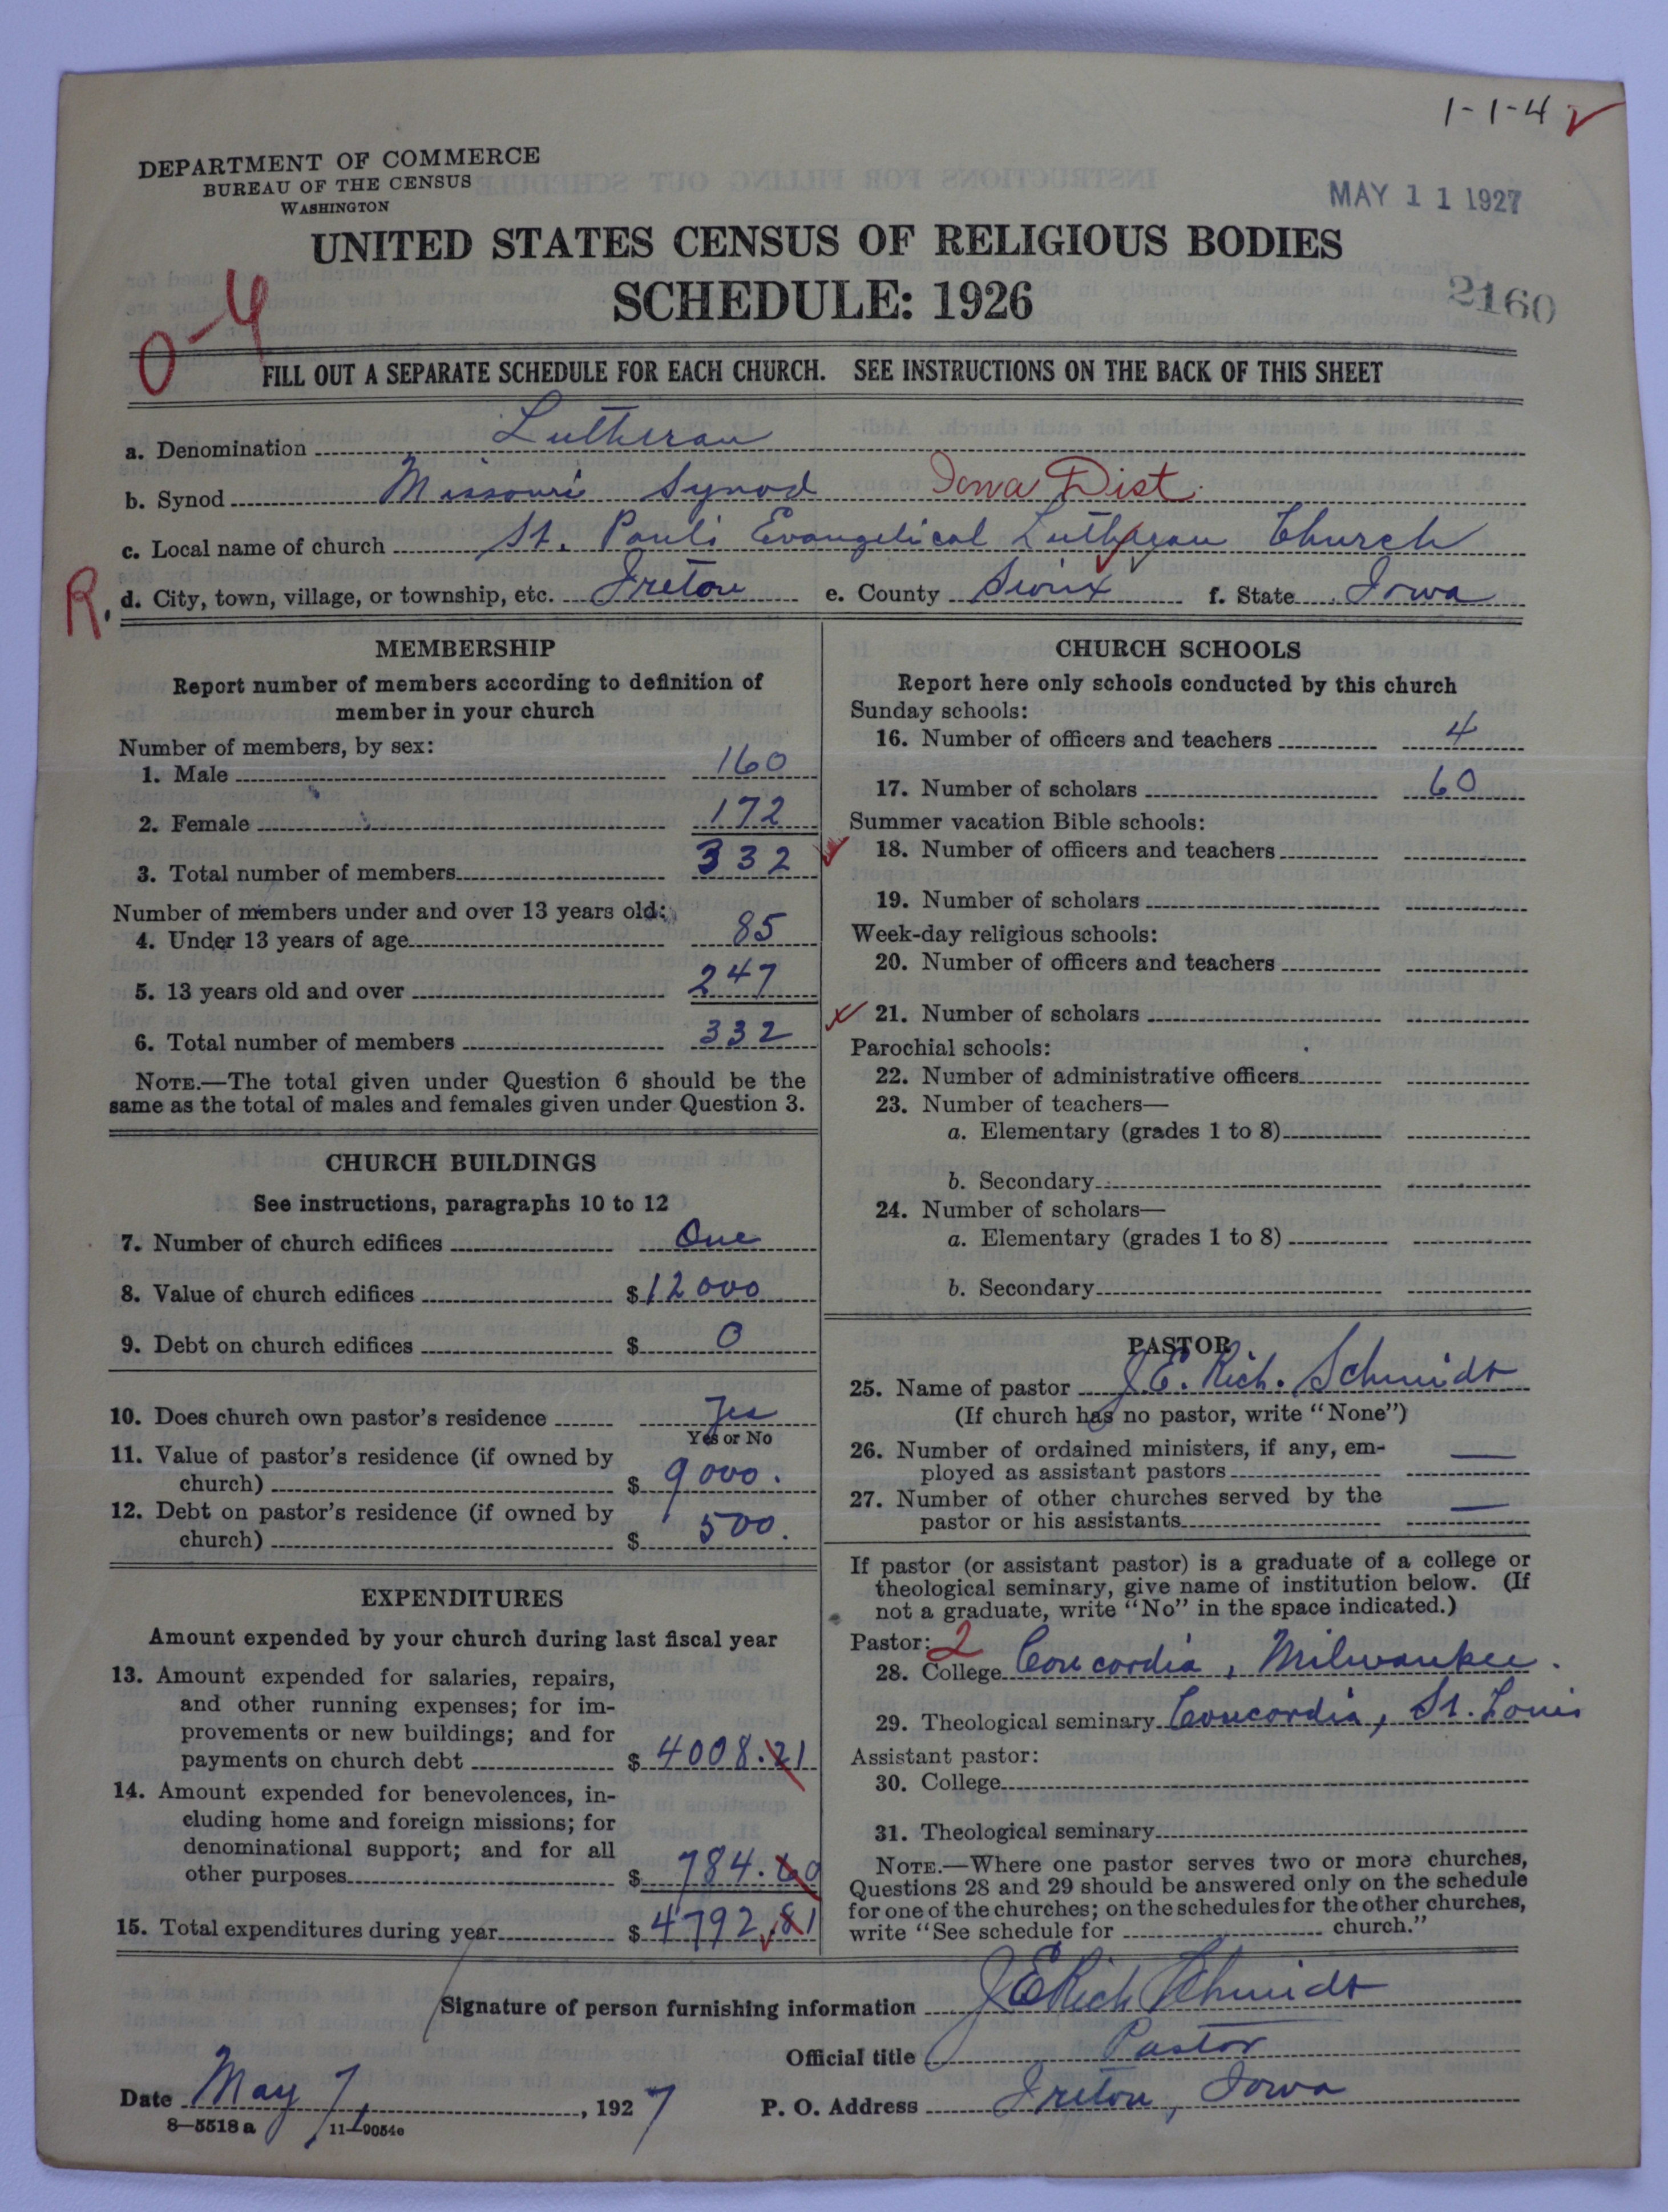 1-1-4
DEPARTMENT OF COMMERCE
BUREAU OF THE CENSUS
WASHINGTON
MAY 11 1927
UNITED STATES CENSUS OF RELIGIOUS BODIES
SCHEDULE: 1926
2160
0-4
FILL OUT A SEPARATE SCHEDULE FOR EACH CHURCH. SEE INSTRUCTIONS ON THE BACK OF THIS SHEET
a. Denomination Lutheran
b. Synod Missouri Synod Iowa Dist.
c. Local name of church St. Paul's Evangelical Lutheran Church
R. d. City, town, village, or township, etc. Ireton e. County Sioux f. State Iowa
MEMBERSHIP
Report number of members according to definition of
member in your church
Number of members, by sex:
1. Male 160
2. Female 172
3. Total number of members 332
Number of members under and over 13 years old:
4. Under 13 years of age 85
5. 13 years old and over 247
6. Total number of members 332
NOTE.—The total given under Question 6 should be the
same as the total of males and females given under Question 3.
CHURCH BUILDINGS
See instructions, paragraphs 10 to 12
7. Number of church edifices One
8. Value of church edifices $12000
9. Debt on church edifices $ 0
10. Does church own pastor's residence Yes
Yes or No
11. Value of pastor's residence (if owned by
church) $ 9000.
12. Debt on pastor's residence (if owned by
church) $ 500.
EXPENDITURES
Amount expended by your church during last fiscal year
13. Amount expended for salaries, repairs,
and other running expenses; for im-
provements or new buildings; and for
payments on church debt $ 4008.21
14. Amount expended for benevolences, in-
cluding home and foreign missions; for
denominational support; and for all
other purposes $ 784.60
15. Total expenditures during year $ 4792.81
CHURCH SCHOOLS
Report here only schools conducted by this church
Sunday schools:
16. Number of officers and teachers 4
17. Number of scholars 60
Summer vacation Bible schools:
18. Number of officers and teachers
19. Number of scholars
Week-day religious schools:
20. Number of officers and teachers
21. Number of scholars
Parochial schools:
22. Number of administrative officers
23. Number of teachers—
a. Elementary (grades 1 to 8)
b. Secondary
24. Number of scholars—
a. Elementary (grades 1 to 8)
b. Secondary
PASTOR
25. Name of pastor J. E. Rich. Schmidt
(If church has no pastor, write "None")
26. Number of ordained ministers, if any, em-
ployed as assistant pastors —
27. Number of other churches served by the
pastor or his assistants —
If pastor (or assistant pastor) is a graduate of a college or
theological seminary, give name of institution below. (If
not a graduate, write "No" in the space indicated.)
Pastor: 2
28. College Concordia, Milwaukee.
29. Theological seminary Concordia, St. Louis
Assistant pastor:
30. College
31. Theological seminary
NOTE.—Where one pastor serves two or more churches,
Questions 28 and 29 should be answered only on the schedule
for one of the churches; on the schedules for the other churches,
write "See schedule for church."
Signature of person furnishing information J E Rich Schmidt
Official title Pastor
Date May 7, 1927 P. O. Address Ireton, Iowa
8—5518 a 11—9054e